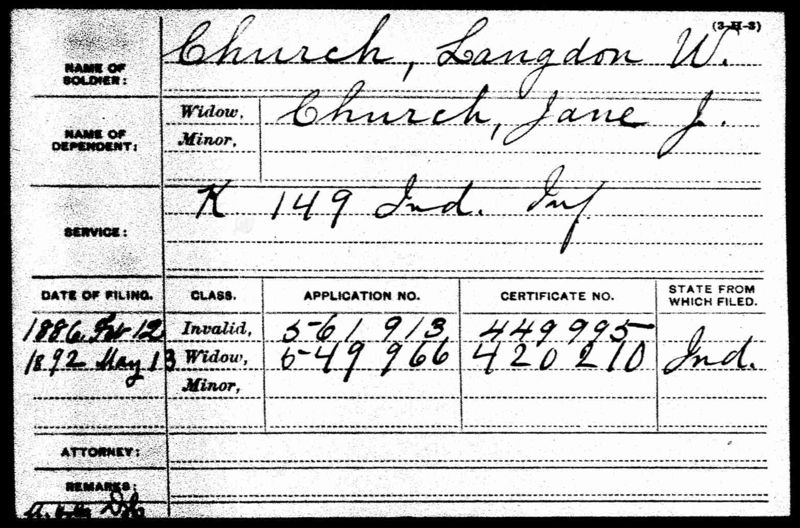 (3-H-3)
NAME OF SOLDIER: Church, Langdon W.
NAME OF DEPENDENT: Widow, Church, Jane J.
Minor,
SERVICE: K 149 Ind. Inf
DATE OF FILING. CLASS. APPLICATION NO. CERTIFICATE NO. STATE FROM WHICH FILED.
1886 Feb 12 Invalid, 561 913 449 995
1892 May 13 Widow, 549 966 420 210 Ind.
Minor,
ATTORNEY:
REMARKS: